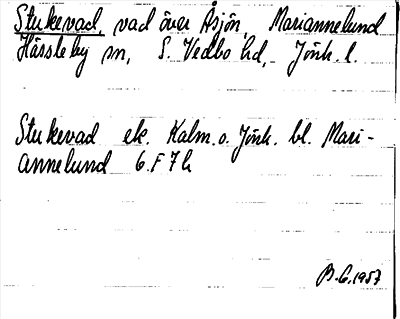 Stukevad, vad över Åsjön, Mariannelund
Hässleby sn, S. Vedbo hd, Jönk. l.
Stukevad ek. Kalm. o. Jönk. bl. Mari-
annelund 6 F 7 h
B. G. 1957